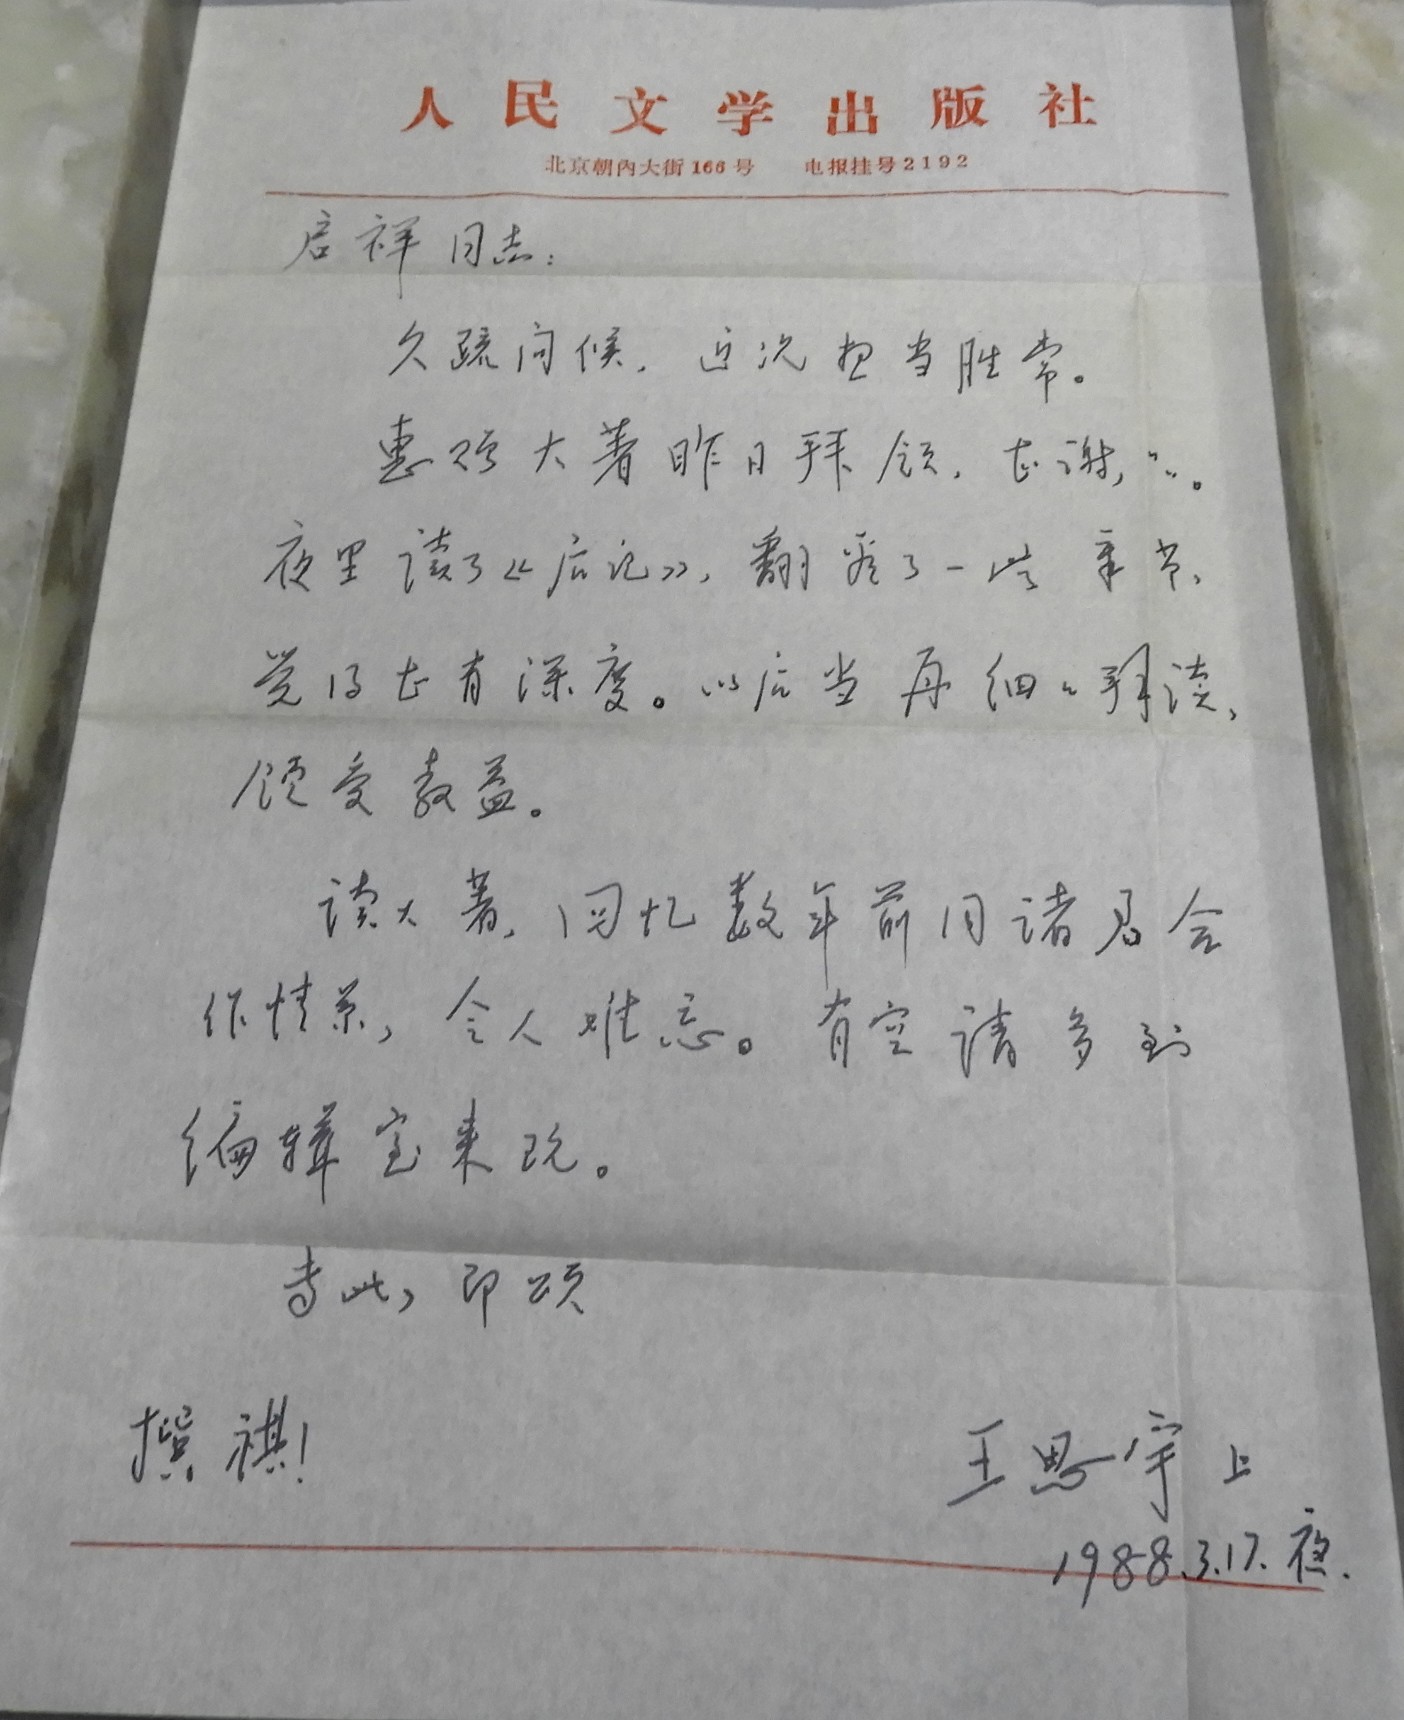 人民文学出版社
北京朝内大街166号 电报挂号2192
启祥同志：
久疏问候，近况想当胜常。
惠颁大著昨日拜领，甚谢，〻。
夜里读了《后记》，翻看了一些章节，
觉得甚有深度。以后当再细〻拜读，
领受教益。
读大著，回忆数年前同诸君合
作情景，令人难忘。有空请多到
编辑室来玩。
专此，即颂
撰祺！
王思宇上
1988.3.17.夜.